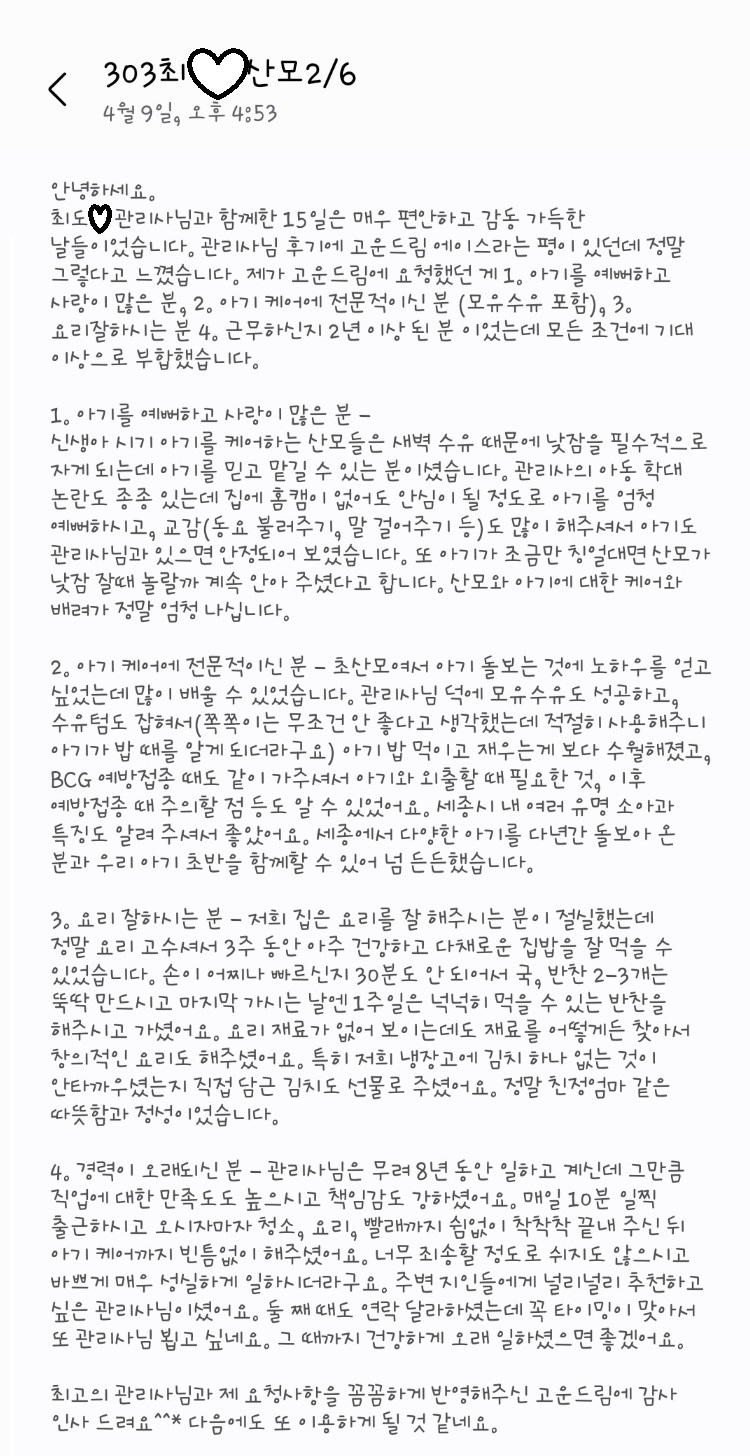 303최♡산모2/6
4월 9일, 오후 4:53
안녕하세요.
최도♡관리사님과 함께한 15일은 매우 편안하고 감동 가득한
날들이었습니다. 관리사님 후기에 고운드림 에이스라는 평이 있던데 정말
그렇다고 느꼈습니다. 제가 고운드림에 요청했던 게 1. 아기를 예뻐하고
사랑이 많은 분, 2. 아기 케어에 전문적이신 분 (모유수유 포함), 3.
요리잘하시는 분 4. 근무하신지 2년 이상 된 분 이었는데 모든 조건에 기대
이상으로 부합했습니다.
1. 아기를 예뻐하고 사랑이 많은 분 -
신생아 시기 아기를 케어하는 산모들은 새벽 수유 때문에 낮잠을 필수적으로
자게 되는데 아기를 믿고 맡길 수 있는 분이셨습니다. 관리사의 아동 학대
논란도 종종 있는데 집에 홈캠이 없어도 안심이 될 정도로 아기를 엄청
예뻐하시고, 교감(동요 불러주기, 말 걸어주기 등)도 많이 해주셔서 아기도
관리사님과 있으면 안정되어 보였습니다. 또 아기가 조금만 칭얼대면 산모가
낮잠 잘때 놀랄까 계속 안아 주셨다고 합니다. 산모와 아기에 대한 케어와
배려가 정말 엄청 나십니다.
2. 아기 케어에 전문적이신 분 - 초산모여서 아기 돌보는 것에 노하우를 얻고
싶었는데 많이 배울 수 있었습니다. 관리사님 덕에 모유수유도 성공하고,
수유텀도 잡혀서(쪽쪽이는 무조건 안 좋다고 생각했는데 적절히 사용해주니
아기가 밥 때를 알게 되더라구요) 아기 밥 먹이고 재우는게 보다 수월해졌고,
BCG 예방접종 때도 같이 가주셔서 아기와 외출할 때 필요한 것, 이후
예방접종 때 주의할 점 등도 알 수 있었어요. 세종시 내 여러 유명 소아과
특징도 알려 주셔서 좋았어요. 세종에서 다양한 아기를 다년간 돌보아 온
분과 우리 아기 초반을 함께할 수 있어 넘 든든했습니다.
3. 요리 잘하시는 분 - 저희 집은 요리를 잘 해주시는 분이 절실했는데
정말 요리 고수셔서 3주 동안 아주 건강하고 다채로운 집밥을 잘 먹을 수
있었습니다. 손이 어찌나 빠르신지 30분도 안 되어서 국, 반찬 2-3개는
뚝딱 만드시고 마지막 가시는 날엔 1주일은 넉넉히 먹을 수 있는 반찬을
해주시고 가셨어요. 요리 재료가 없어 보이는데도 재료를 어떻게든 찾아서
창의적인 요리도 해주셨어요. 특히 저희 냉장고에 김치 하나 없는 것이
안타까우셨는지 직접 담근 김치도 선물로 주셨어요. 정말 친정엄마 같은
따뜻함과 정성이었습니다.
4. 경력이 오래되신 분 - 관리사님은 무려 8년 동안 일하고 계신데 그만큼
직업에 대한 만족도도 높으시고 책임감도 강하셨어요. 매일 10분 일찍
출근하시고 오시자마자 청소, 요리, 빨래까지 쉼없이 착착착 끝내 주신 뒤
아기 케어까지 빈틈없이 해주셨어요. 너무 죄송할 정도로 쉬지도 않으시고
바쁘게 매우 성실하게 일하시더라구요. 주변 지인들에게 널리널리 추천하고
싶은 관리사님이셨어요. 둘 째 때도 연락 달라하셨는데 꼭 타이밍이 맞아서
또 관리사님 뵙고 싶네요. 그 때까지 건강하게 오래 일하셨으면 좋겠어요.
최고의 관리사님과 제 요청사항을 꼼꼼하게 반영해주신 고운드림에 감사
인사 드려요^^* 다음에도 또 이용하게 될 것 같네요.